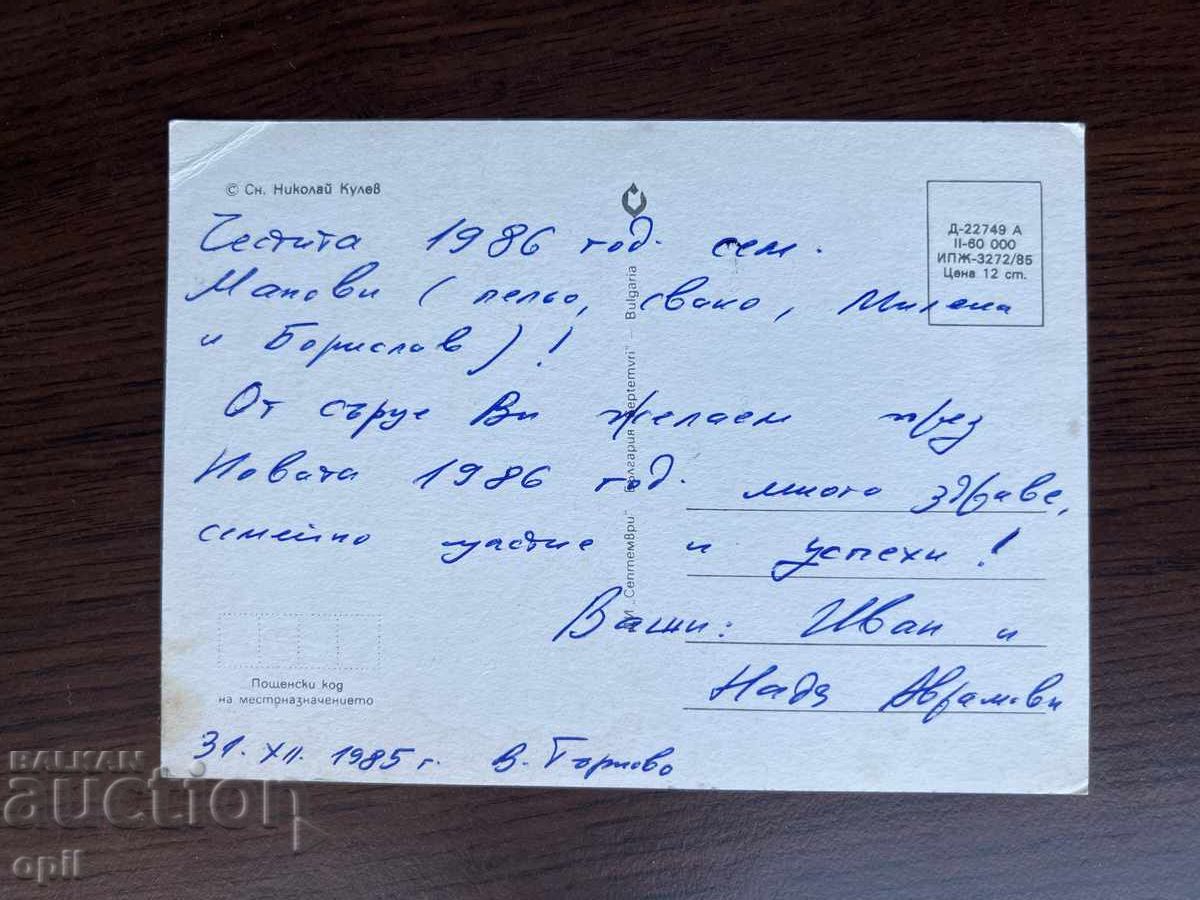 © Сн. Николай Кулев
Д-22749 А
II-60 000
ИПЖ-3272/85
Цена 12 ст.
Честита 1986 год. сем.
Манови (лельо, свако, Милена
и Борислав)!
От сърце Ви желаем през
Новата 1986 год. много здраве,
семейно щастие и успехи!
Ваши: Иван и
Надя Аврамови
31. XII. 1985 г. В. Търново
И „Септември" България „Septemvri" — Bulgaria
Пощенски код
на местрназначението
BALKAN
auction
opil